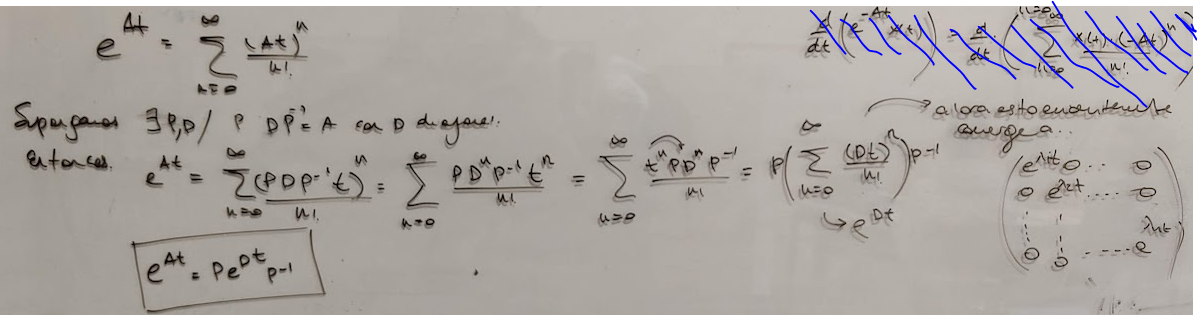 e^{At} = \sum_{n=0}^{\infty} \frac{(At)^n}{n!}
\frac{d}{dt}(e^{-At} x(t)) = \frac{d}{dt}\left(\sum_{n=0}^{\infty} \frac{x(t) \cdot (-At)^n}{n!}\right)
Supongamos ∃ P,D / P D P^{-1} = A con D diagonal.
Entonces. e^{At} = \sum_{n=0}^{\infty} \frac{(PDP^{-1}t)^n}{n!} = \sum_{n=0}^{\infty} \frac{P D^n P^{-1} t^n}{n!} = \sum_{n=0}^{\infty} \frac{t^n P D^n P^{-1}}{n!} = P\left(\sum_{n=0}^{\infty} \frac{(Dt)^n}{n!}\right) P^{-1}
↳ e^{Dt}
ahora esto
converge a..
e^{λ1t} 0 .. 0
0 e^{λ2t} .... 0
0 0 ...... e^{λnt}
e^{At} = P e^{Dt} P^{-1}